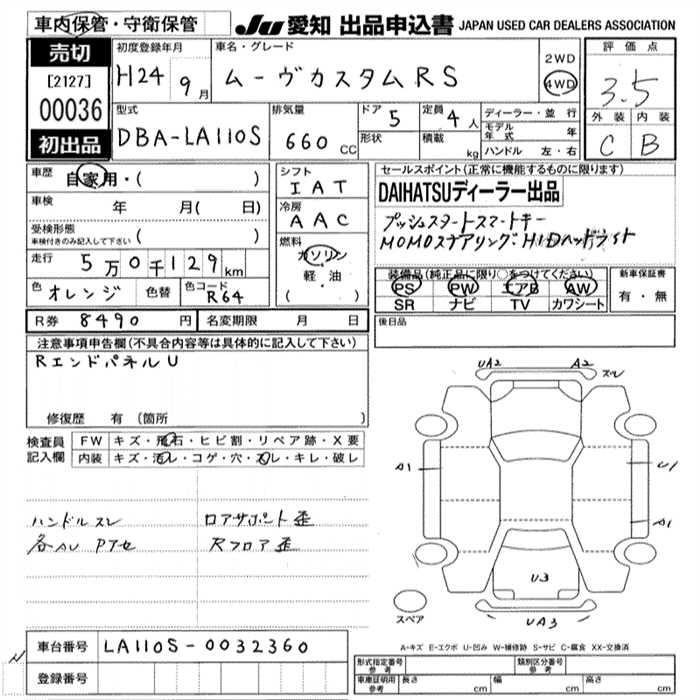 車内保管・守衛保管
JU 愛知 出品申込書 JAPAN USED CAR DEALERS ASSOCIATION
売切
[2127]
00036
初出品
初度登録年月
H24 9月
車名・グレード
ムーヴカスタムRS
2WD
4WD
評価点
3.5
外装 内装
C B
型式
DBA-LA110S
排気量
660 CC
ドア 5
形状
定員 4人
積載 kg
ディーラー・並行
モデル年式 年
ハンドル 左・右
車歴 自家用・( )
車検 年 月( 日)
受検形態
車検付きのみ記入して下さい ( )
走行 5万0千129km
色 オレンジ 色替 色コード R64
シフト
IAT
冷房
AAC
燃料
ガソリン
軽・油
( ・ )
セールスポイント(正常に機能するものに限ります)
DAIHATSUディーラー出品
プッシュスタートスマートキー
MOMOステアリング:HIDヘッドライト
装備品(純正品に限り○をつけてください)
PS PW エアB AW
SR ナビ TV カワシート
新車保証書
有・無
R券 8490円 名変期限 月 日
後日品
注意事項申告欄(不具合内容等は具体的に記入して下さい)
RエンドパネルU
修復歴 有(箇所 )
検査員記入欄
FW キズ・飛石・ヒビ割・リペア跡・X要
内装 キズ・汚レ・コゲ・穴・スレ・キレ・破レ
ハンドルスレ ロアサポート歪
各AU Pアセ Rフロア歪
UA2 A2 スレ
A1 U1
A1
U3
UA3
スペア
A-キズ E-エクボ U-凹み W-補修跡 S-サビ C-腐食 XX-交換済
車台番号 LA110S-0032360
登録番号
N
形式指定番号 参考
類別区分番号 参考
車庫証明用 参考 長さ cm 幅 cm 高さ cm